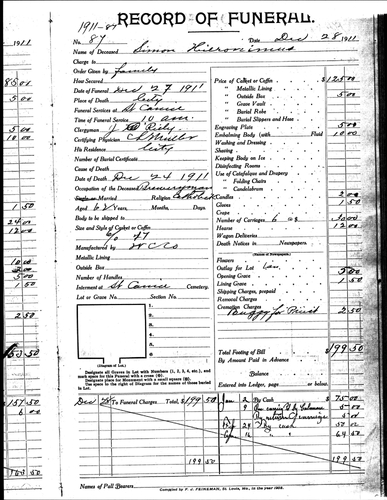 1911-87
RECORD OF FUNERAL.
No. 87 Date Dec 28 1911
Name of Deceased Simon Hieronimus
Charge to
Order Given by family
How Secured
Date of Funeral Dec 27 1911
Place of Death City
Funeral Services at St Louise
Time of Funeral Service 10 am
Clergyman
Certifying Physician
His Residence City
Number of Burial Certificate
Cause of Death
Date of Death Dec 24 1911
Occupation of the Deceased
Single or Married Religion Catholic
Aged 62 Years, Months, Days.
Body to be shipped to
Size and Style of Casket or Coffin
6/0 47
Manufactured by
Metallic Lining
Outside Box
Number of Handles
Interment at Cemetery.
Lot or Grave No. Section No.
(Diagram of Lot.)
Designate Graves in Lot with Numbers (1, 2, 3, 4, etc.), and mark space for this Funeral with a cross (⊗).
Designate place for Monument with a small square (☐).
Use space in right of Diagram for the names of those buried in Lot.
Price of Casket or Coffin $125 00
" Metallic Lining
" Outside Box 5 00
" Grave Vault
" Burial Robe
" Burial Slippers and Hose
Engraving Plate 5 00
Embalming Body (with Fluid) 10 00
Washing and Dressing
Shaving
Keeping Body on Ice
Disinfecting Rooms
Use of Catafalque and Drapery
" Folding Chairs
" Candelabrum
Candles 2 00
Gloves 1 50
Crape
Number of Carriages 6 @ 30 00
Hearse 12 00
Wagon Deliveries
Death Notices in Newspapers.
(Names of Newspapers.)
Flowers
Outlay for Lot
Opening Grave 5 00
Lining Grave 1 50
Shipping Charges, prepaid
Removal Charges
Cremation Charges
Buggy for Priest 2 50
Total Footing of Bill $199 50
By Amount Paid in Advance
Balance
Entered into Ledger, page or below.
Dec 28 To Funeral Charges Total, $199 50
Jan 2 By Cash $ 75 00
9 5 00
By return of carriage 5 00
29 By cash 50 00
16 " " 64 50
199 50 199 50
Names of Pall Bearers
Compiled by F. J. FEINEMAN, St. Louis, Mo.